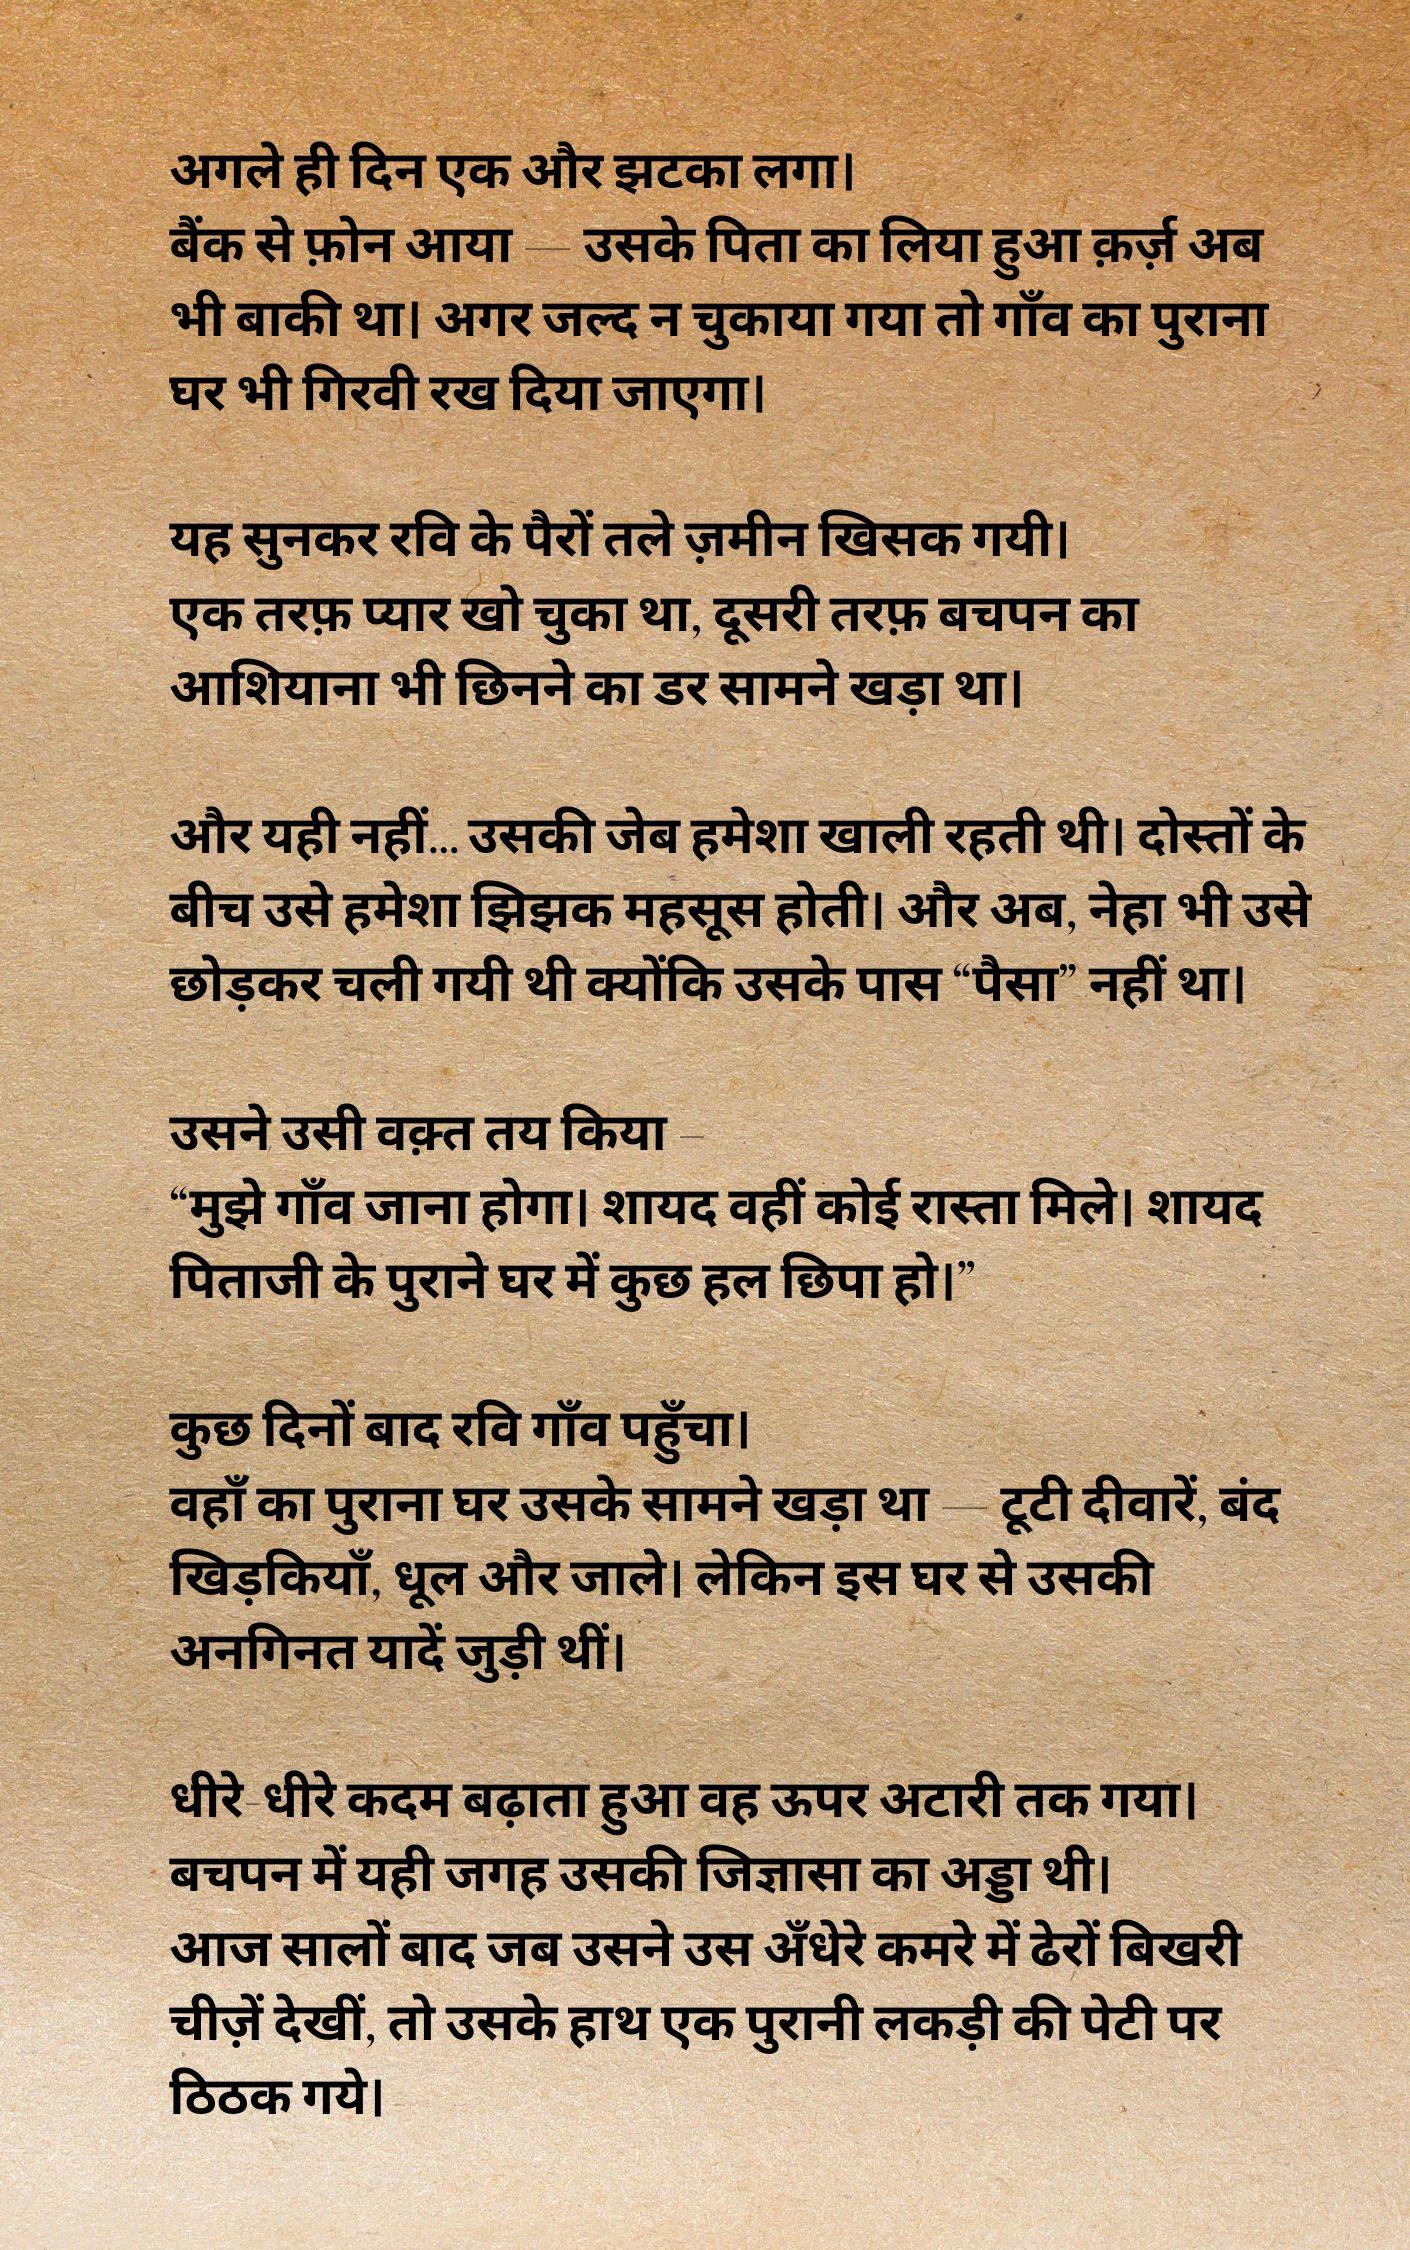 अगले ही दिन एक और झटका लगा।
बैंक से फ़ोन आया — उसके पिता का लिया हुआ क़र्ज़ अब
भी बाकी था। अगर जल्द न चुकाया गया तो गाँव का पुराना
घर भी गिरवी रख दिया जाएगा।
यह सुनकर रवि के पैरों तले ज़मीन खिसक गयी।
एक तरफ़ प्यार खो चुका था, दूसरी तरफ़ बचपन का
आशियाना भी छिनने का डर सामने खड़ा था।
और यही नहीं... उसकी जेब हमेशा खाली रहती थी। दोस्तों के
बीच उसे हमेशा झिझक महसूस होती। और अब, नेहा भी उसे
छोड़कर चली गयी थी क्योंकि उसके पास “पैसा” नहीं था।
उसने उसी वक़्त तय किया –
“मुझे गाँव जाना होगा। शायद वहीं कोई रास्ता मिले। शायद
पिताजी के पुराने घर में कुछ हल छिपा हो।”
कुछ दिनों बाद रवि गाँव पहुँचा।
वहाँ का पुराना घर उसके सामने खड़ा था — टूटी दीवारें, बंद
खिड़कियाँ, धूल और जाले। लेकिन इस घर से उसकी
अनगिनत यादें जुड़ी थीं।
धीरे-धीरे कदम बढ़ाता हुआ वह ऊपर अटारी तक गया।
बचपन में यही जगह उसकी जिज्ञासा का अड्डा थी।
आज सालों बाद जब उसने उस अँधेरे कमरे में ढेरों बिखरी
चीज़ें देखीं, तो उसके हाथ एक पुरानी लकड़ी की पेटी पर
ठिठक गये।